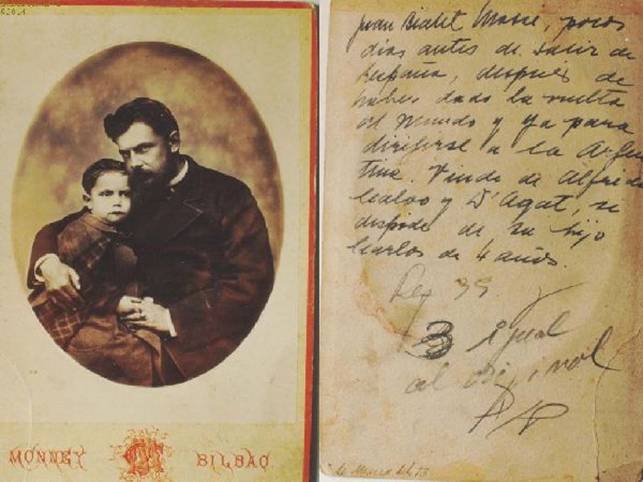 MONNEY BILBAO
Juan Bialet Masse, pocos
dias antes de salir de
España, después de
haber dado la vuelta
al mundo y ya para
dirigirse a la Argen
tina. Viudo de Alfrida
y D'Agat, se
despide de su hijo
Carlos de 4 años.
3 igual
al original